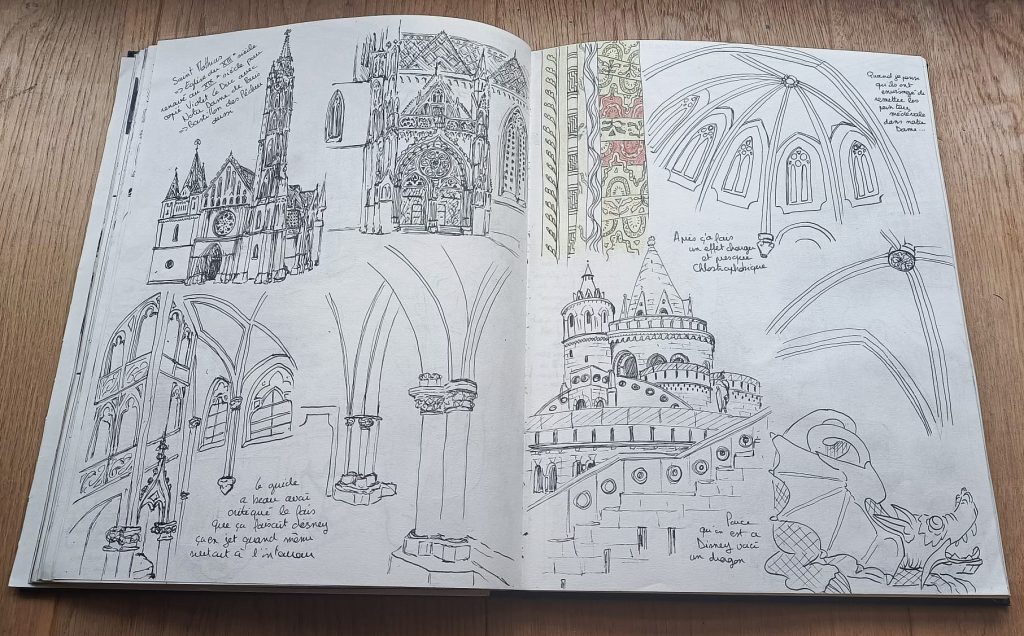 Saint Mathias
⇒ Eglise du XIIIᵉ siècle
renové au XIXᵉ siècle pour
copié Violet le Duc avec
Notre Dame de Paris
⇒ Bastillon des
Quand je pense
qu'ils ont
envisagé de
remettre les
peintures
médiévale
dans notre
Dame ...
Après ça fais
un effet chargé
et presque
Chlostrophobique
le guide
a beau avoir
critiqué le fais
que ça faisait disney
ça en jet quand même
surtout à l'intérieur
Parce
qu'on est a
Disney voici
un dragon